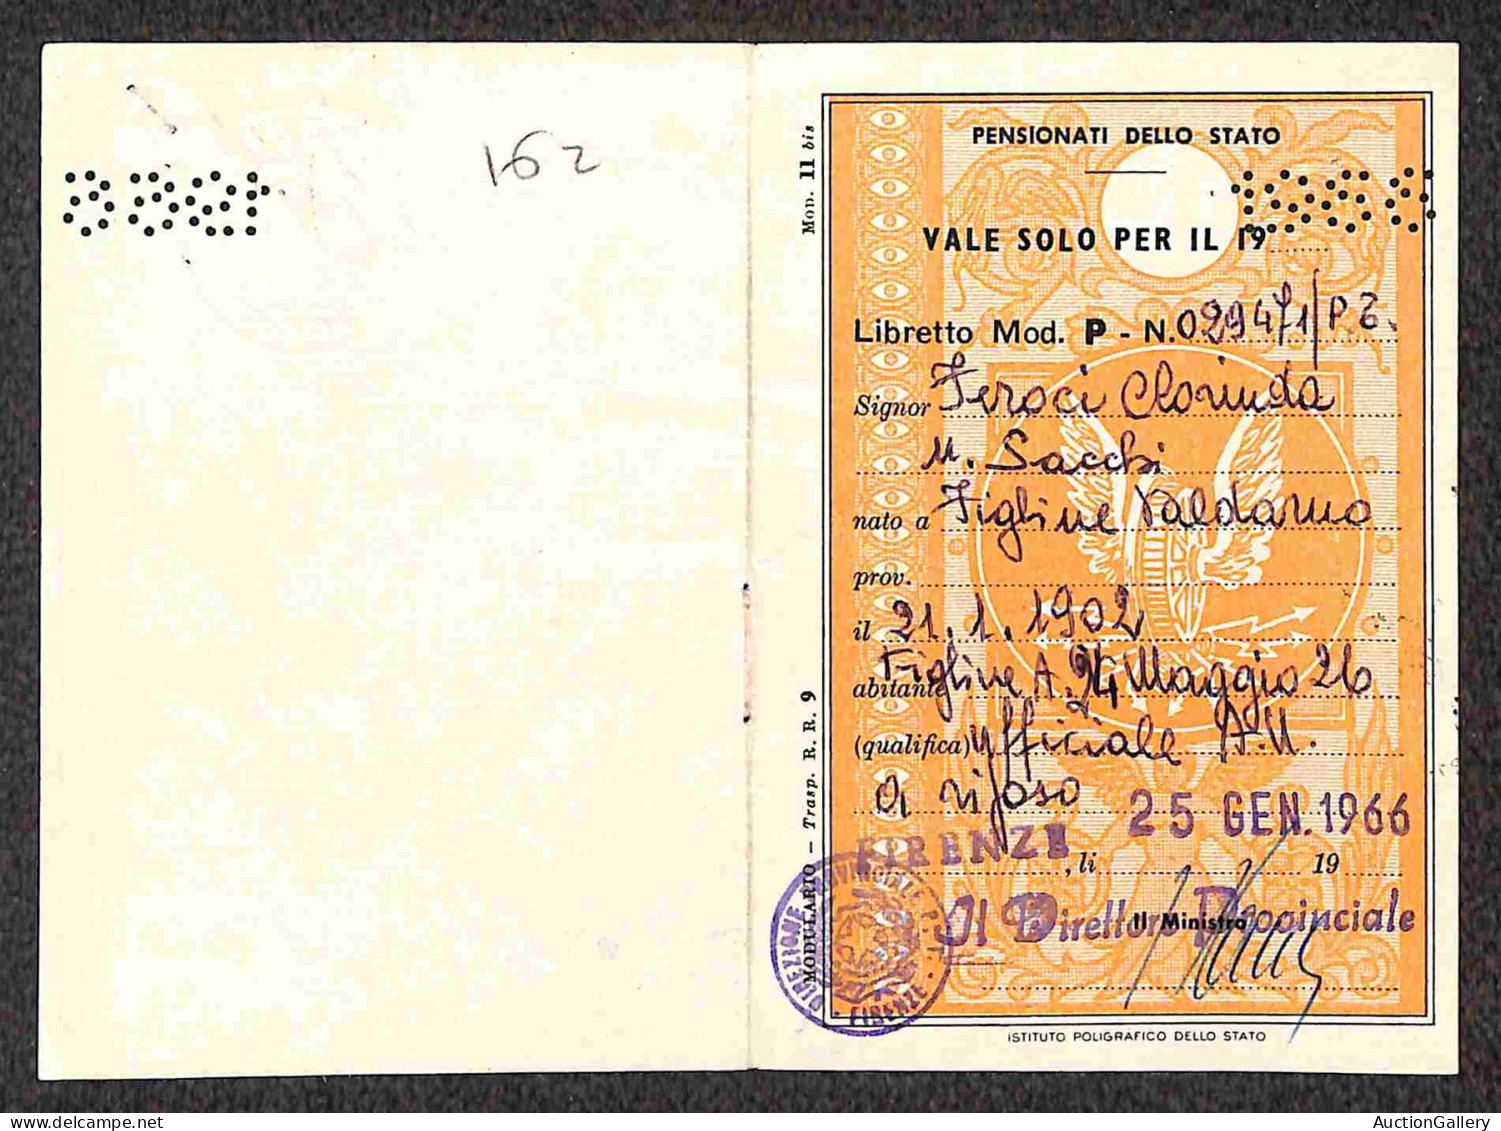 162
Mod. 11 bis
MODULARIO — Trasp. R. R. 9
PENSIONATI DELLO STATO
VALE SOLO PER IL 19
Libretto Mod. P - N. 029471/P.T.
Signor Feroci Clorinda
n. Sacchi
nato a Figline Valdarno
prov.
il 21.1.1902
abitante Figline A. 24 Maggio 26
(qualifica) Ufficiale A.U.
a riposo
25 GEN. 1966
FIRENZE, li 19
Il Direttore Provinciale
Il Ministro
DIREZIONE PROVINCIALE P.T. FIRENZE
ISTITUTO POLIGRAFICO DELLO STATO
AuctionGallery